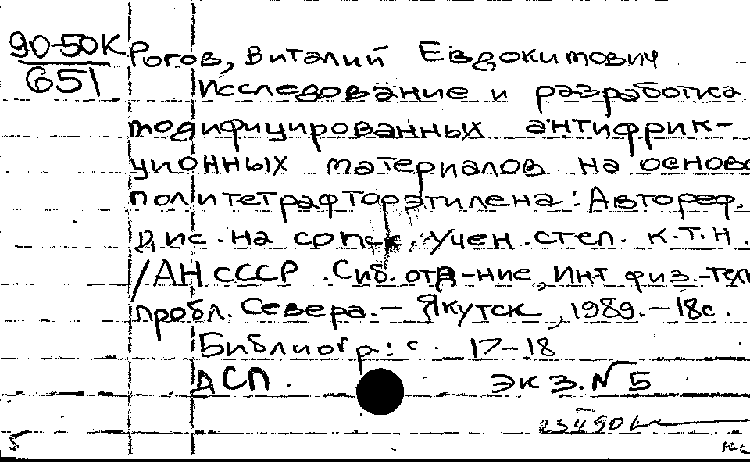 90-50К Рогов, Виталий Евдокимович
651 Исследование и разработка
модифицированных антифрик-
ционных материалов на основе
политетрафторэтилена: Автореф.
дис. на соиск. учен. степ. к.т.н.
/АН СССР. Сиб. отд-ние, Инт физ.-тех
пробл. Севера. – Якутск, 1989. – 18с.
Библиогр.: с. 17-18
ДСП. Экз. № 5
5